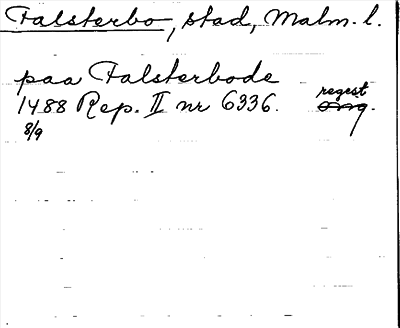 Falsterbo, stad, Malm. l.
paa Falsterbode
1488 Rep. II nr 6336. regest
8/9